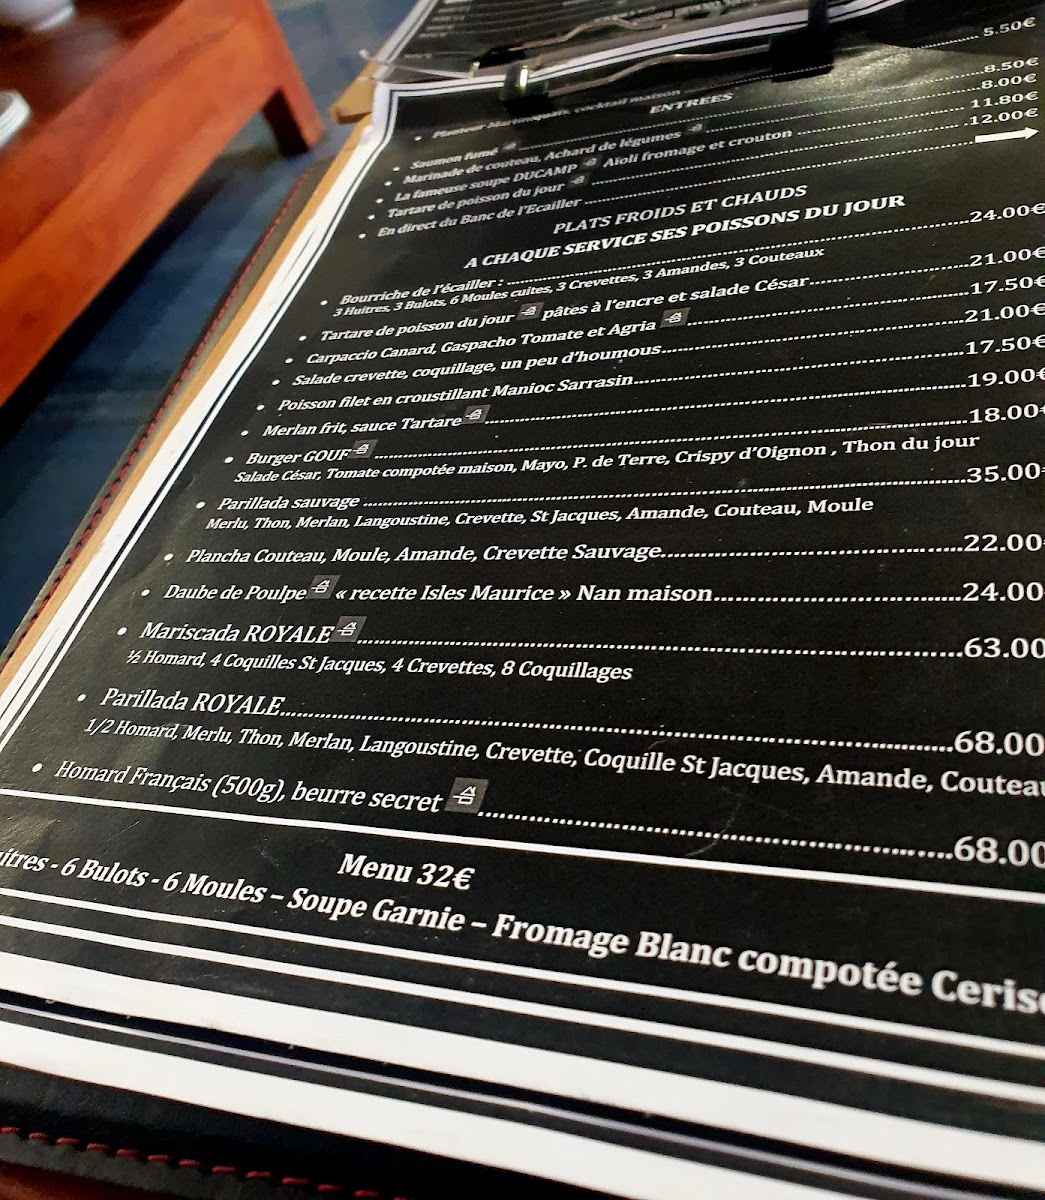 5.50€
Planteur cocktail maison
ENTREES
Saumon fumé 8.50€
Marinade de couteau, Achard de légumes 8.00€
La fameuse soupe DUCAMP Aïoli fromage et crouton 11.80€
Tartare de poisson du jour 12.00€
En direct du Banc de l'Ecailler
PLATS FROIDS ET CHAUDS
A CHAQUE SERVICE SES POISSONS DU JOUR
Bourriche de l'écailler : 24.00€
3 Huitres, 3 Bulots, 6 Moules cuites, 3 Crevettes, 3 Amandes, 3 Couteaux
Tartare de poisson du jour pâtes à l'encre et salade César 21.00€
Carpaccio Canard, Gaspacho Tomate et Agria 17.50€
Salade crevette, coquillage, un peu d'houmous 21.00€
Poisson filet en croustillant Manioc Sarrasin 17.50€
Merlan frit, sauce Tartare 19.00€
Burger GOUF 18.00€
Salade César, Tomate compotée maison, Mayo, P. de Terre, Crispy d'Oignon , Thon du jour
Parillada sauvage 35.00€
Merlu, Thon, Merlan, Langoustine, Crevette, St Jacques, Amande, Couteau, Moule
Plancha Couteau, Moule, Amande, Crevette Sauvage 22.00
Daube de Poulpe « recette Isles Maurice » Nan maison 24.00
Mariscada ROYALE 63.00
½ Homard, 4 Coquilles St Jacques, 4 Crevettes, 8 Coquillages
Parillada ROYALE 68.00
1/2 Homard, Merlu, Thon, Merlan, Langoustine, Crevette, Coquille St Jacques, Amande, Couteau
Homard Français (500g), beurre secret 68.00
Menu 32€
itres - 6 Bulots - 6 Moules – Soupe Garnie – Fromage Blanc compotée Cerise